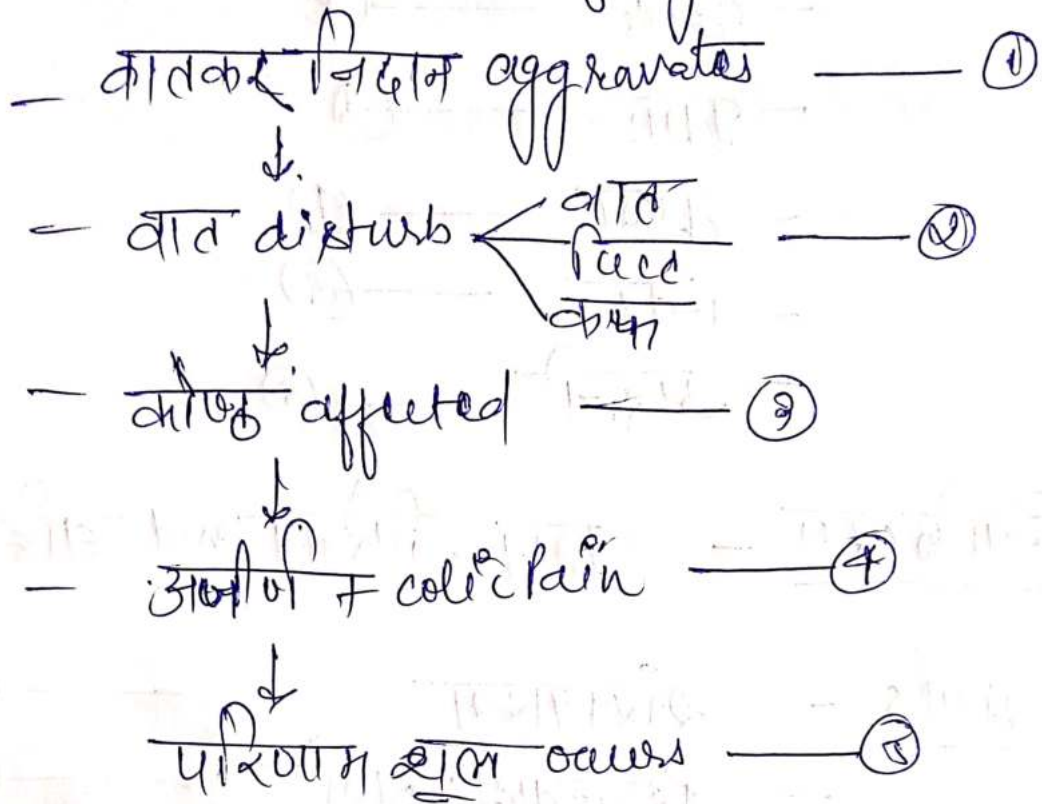 - वातकर निदान aggravates — ①
↓
- वात disturb वात
पित्त — ②
कफ
↓
- कोष्ठ affected — ③
↓
- अजीर्ण + colic Pain — ④
↓
परिणाम शूल occurs — ⑤